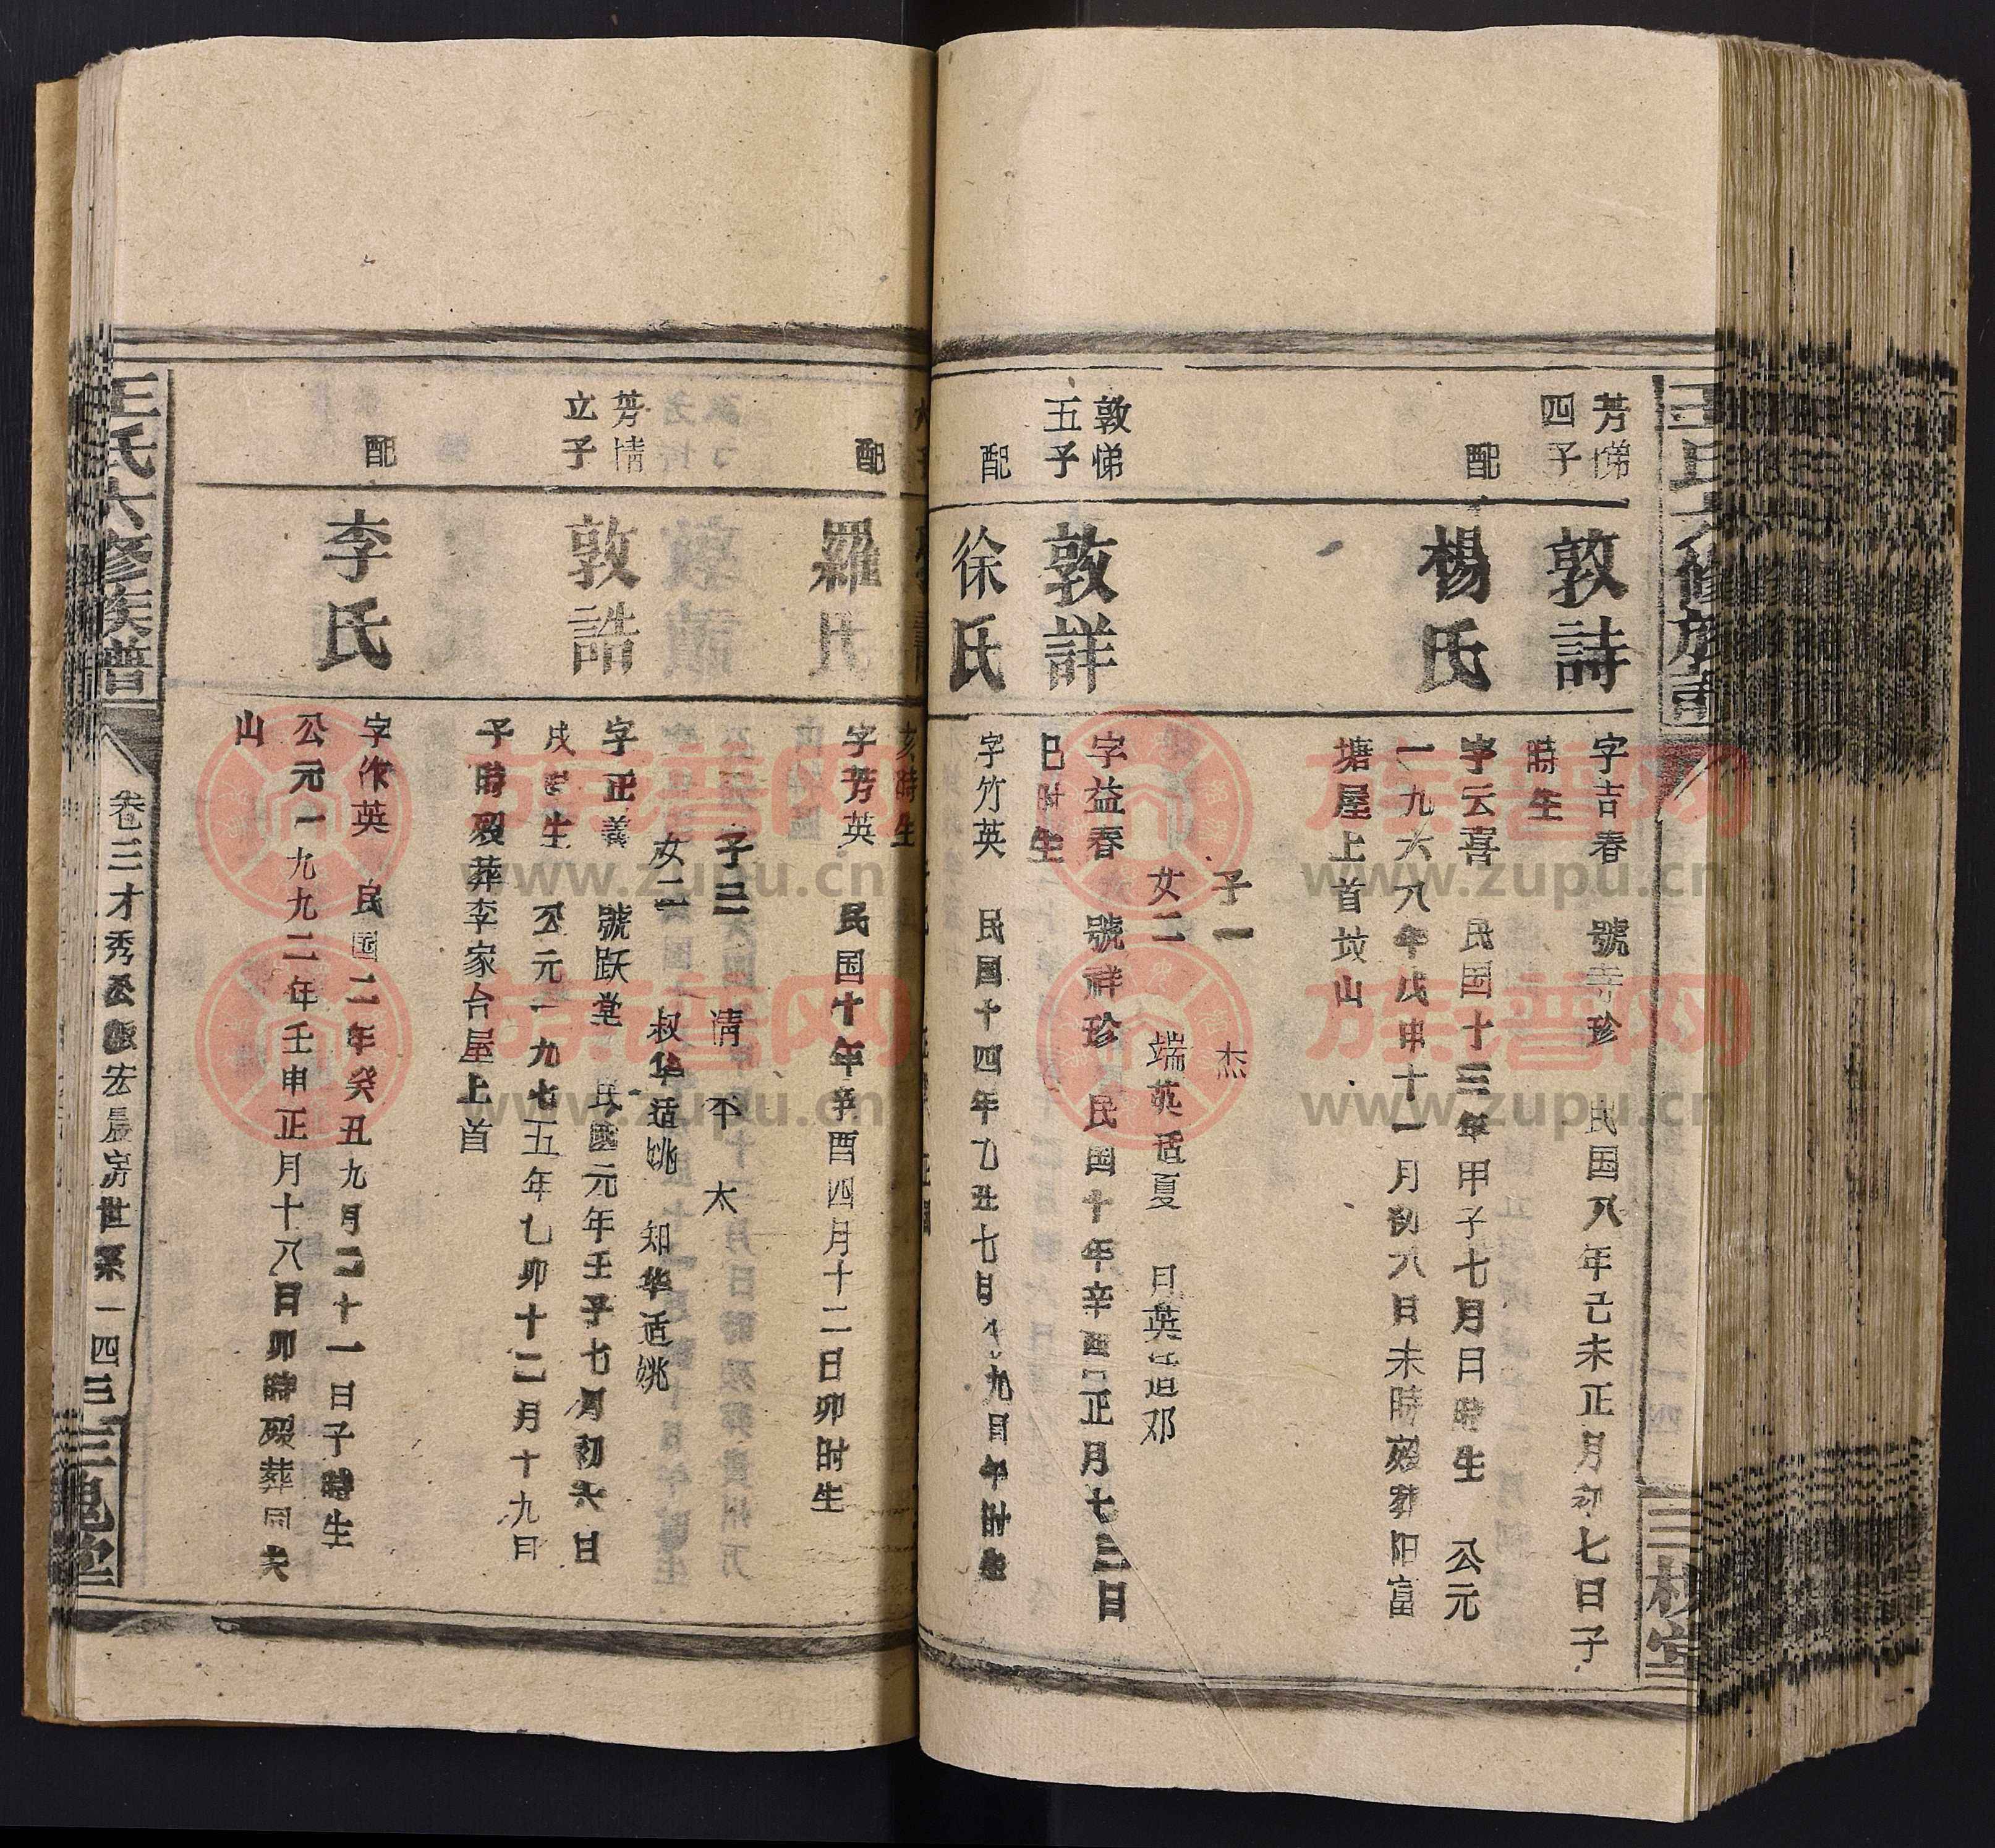 芳悌
四子
敦詩
字吉春 號寺珍 民国八年己未正月初七日子
時生
配
楊氏
字云喜 民国十三年甲子七月日時生 公元
一九六八年戊申十一月初八日未時殁葬阳富
塘屋上首坟山
子一 杰
女二 端英适夏 日英适邓
敦悌
五子
敦詳
字益春 號祥珍 民国十年辛酉正月七三日
巳时生
配
徐氏
字竹英 民国十四年乙丑七月九日午时生
亥時生
配
羅氏
字芳英 民国十年辛酉四月十二日卯时生
子三 清 不 太
女二 叔华适姚 知华适姚
芳情
立子
敦誥
字正義 號跃堂 民國元年壬子七月初六日
戌生 公元一九七五年乙卯十二月十九日
子時殁葬李家台屋上首
配
李氏
字作英 民国二年癸丑九月二十一日子時生
公元一九九二年壬申正月十八日卯時殁葬同夫
山
王氏六修族譜
卷三才秀公派宏晨房世系一四三
三槐堂
www.zupu.cn
族谱网
www.zupu.cn
族谱网
www.zupu.cn
族谱网
www.zupu.cn
族谱网